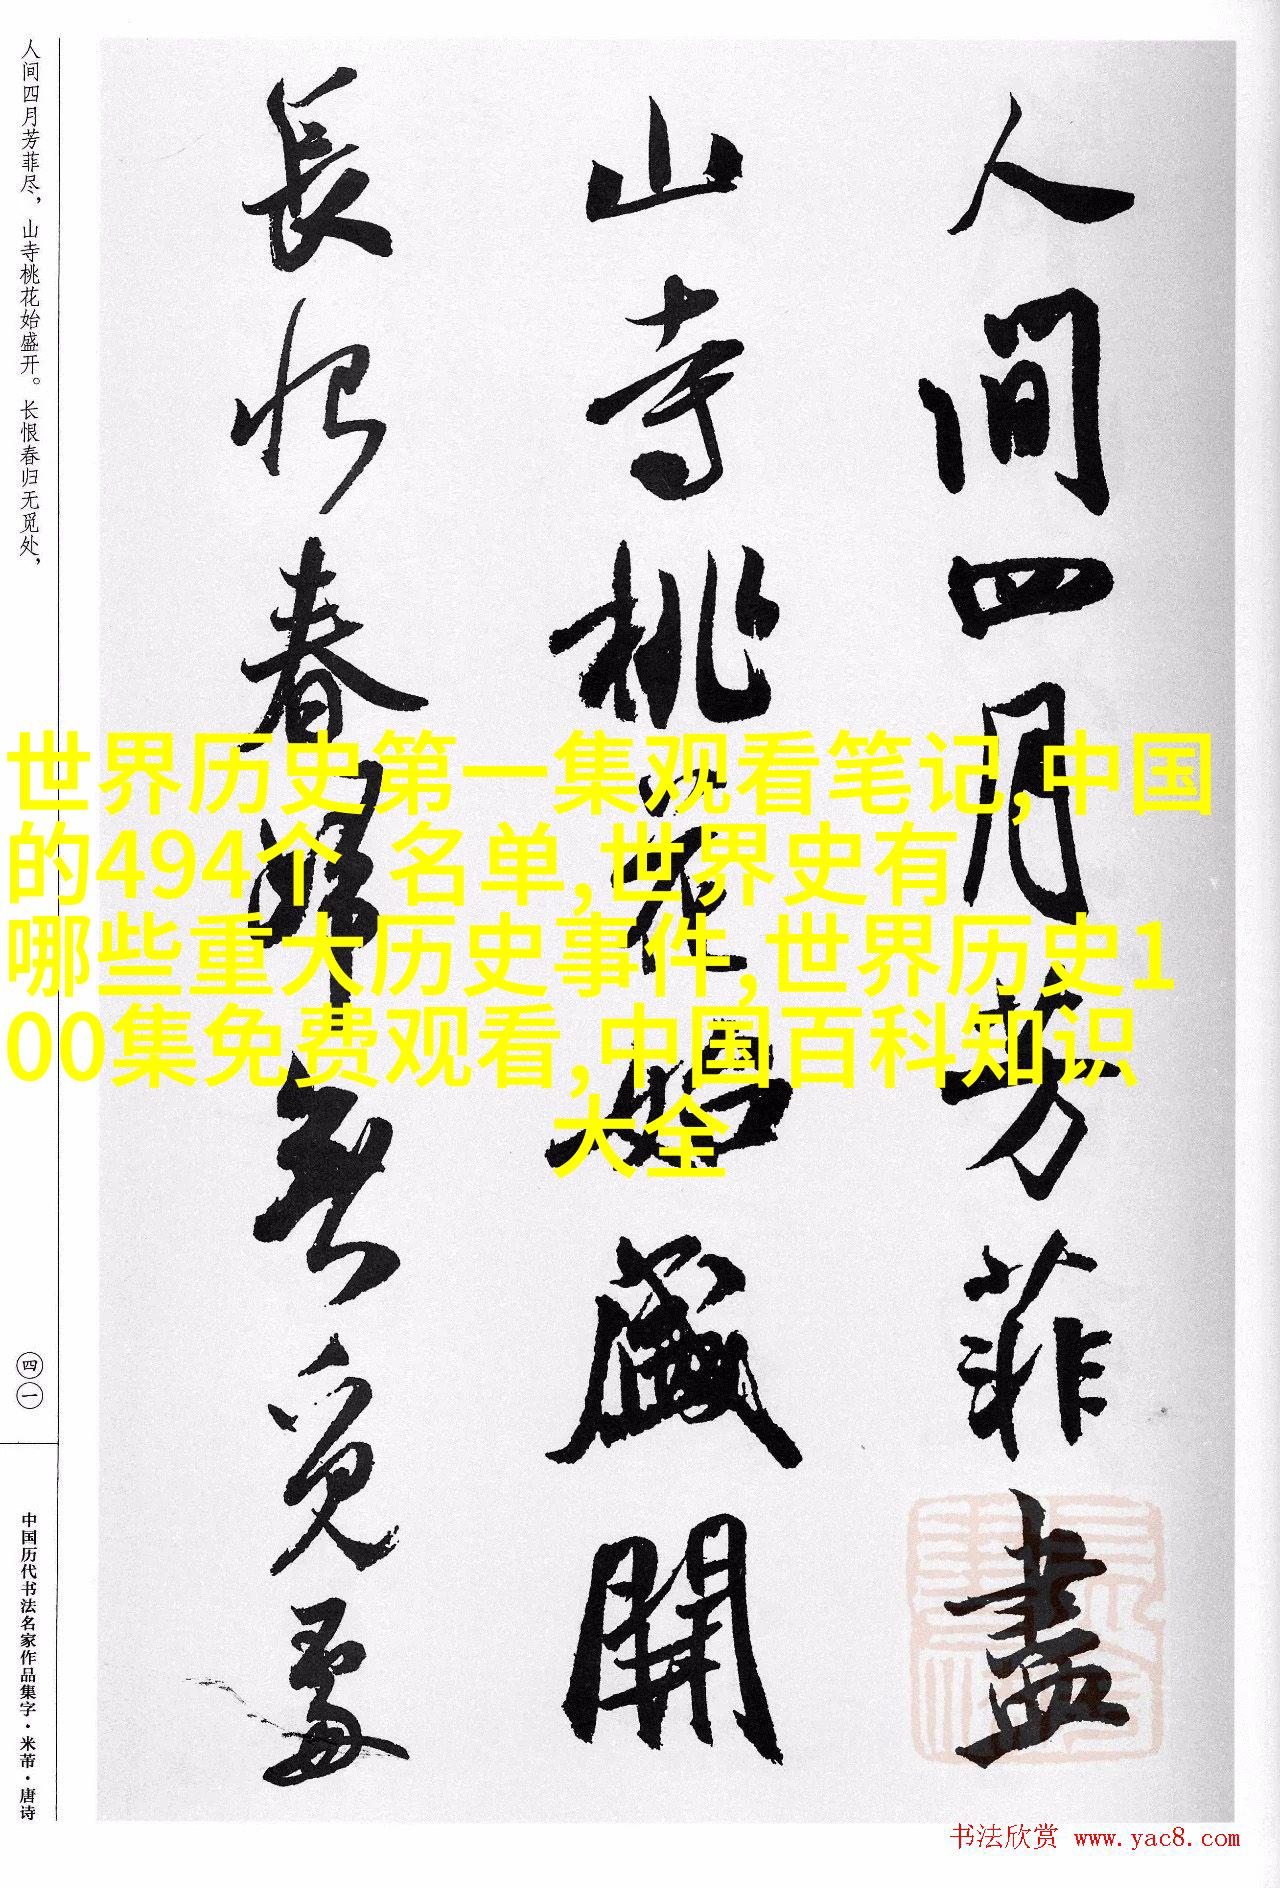 人间四月芳菲尽，山寺桃花始盛开。长恨春归无觅处，
四一
中国历代书法名家作品集字·米芾·唐诗
人間四月芳菲盡
山寺桃花始盛開
長恨春歸無覓處
世界历史第一集观看笔记,中国
的494个 名单,世界史有
哪些重大历史事件,世界历史1
00集免费观看,中国百科知识
大全
书法欣赏 www.yac8.com